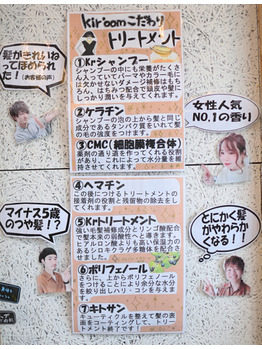 kir'oomこだわり
トリートメント
①Krシャンプー
シャンプーの中にも栄養がたくさ
ん入っていてパーマやカラー毛に
は欠かせないダメージ補修はもち
ろん、はちみつ配合で頭皮や髪に
しっかり潤いを与えてくれます。
②ケラチン
シャンプーの泡の上から髪と同じ
成分であるタンパク質をいれて髪
の毛の強度をつけます。
③CMC(細胞膜複合体)
薬剤の通り道を作ってくれる役割
があり、これによって水分量を維持
させてくれます。
髪がきれいね
ってほめられ
た！（お客様の声）
女性人気
NO.1の香り
④ヘマチン
この後につけるトリートメントの
接着剤の役割と残留物の除去をし
てくれます。
⑤Krトリートメント
強い毛髪補修成分とリンゴ酸配合
で髪本来の弱酸性へと導きます。
ヒアルロン酸よりも高い保湿力の
あるシロキクラゲ多糖体を配合。
⑥ポリフェノール
さらに、上からポリフェノールを
つけることにより余分な水分を
絞り出しハリ・コシを与えます。
⑦キトサン
キューティクルを整えて髪の表
面をコーティングして、トリー
トメント終了です！
マイナス5歳
のつや髪！？
とにかく髪
がやわらか
くなる！！